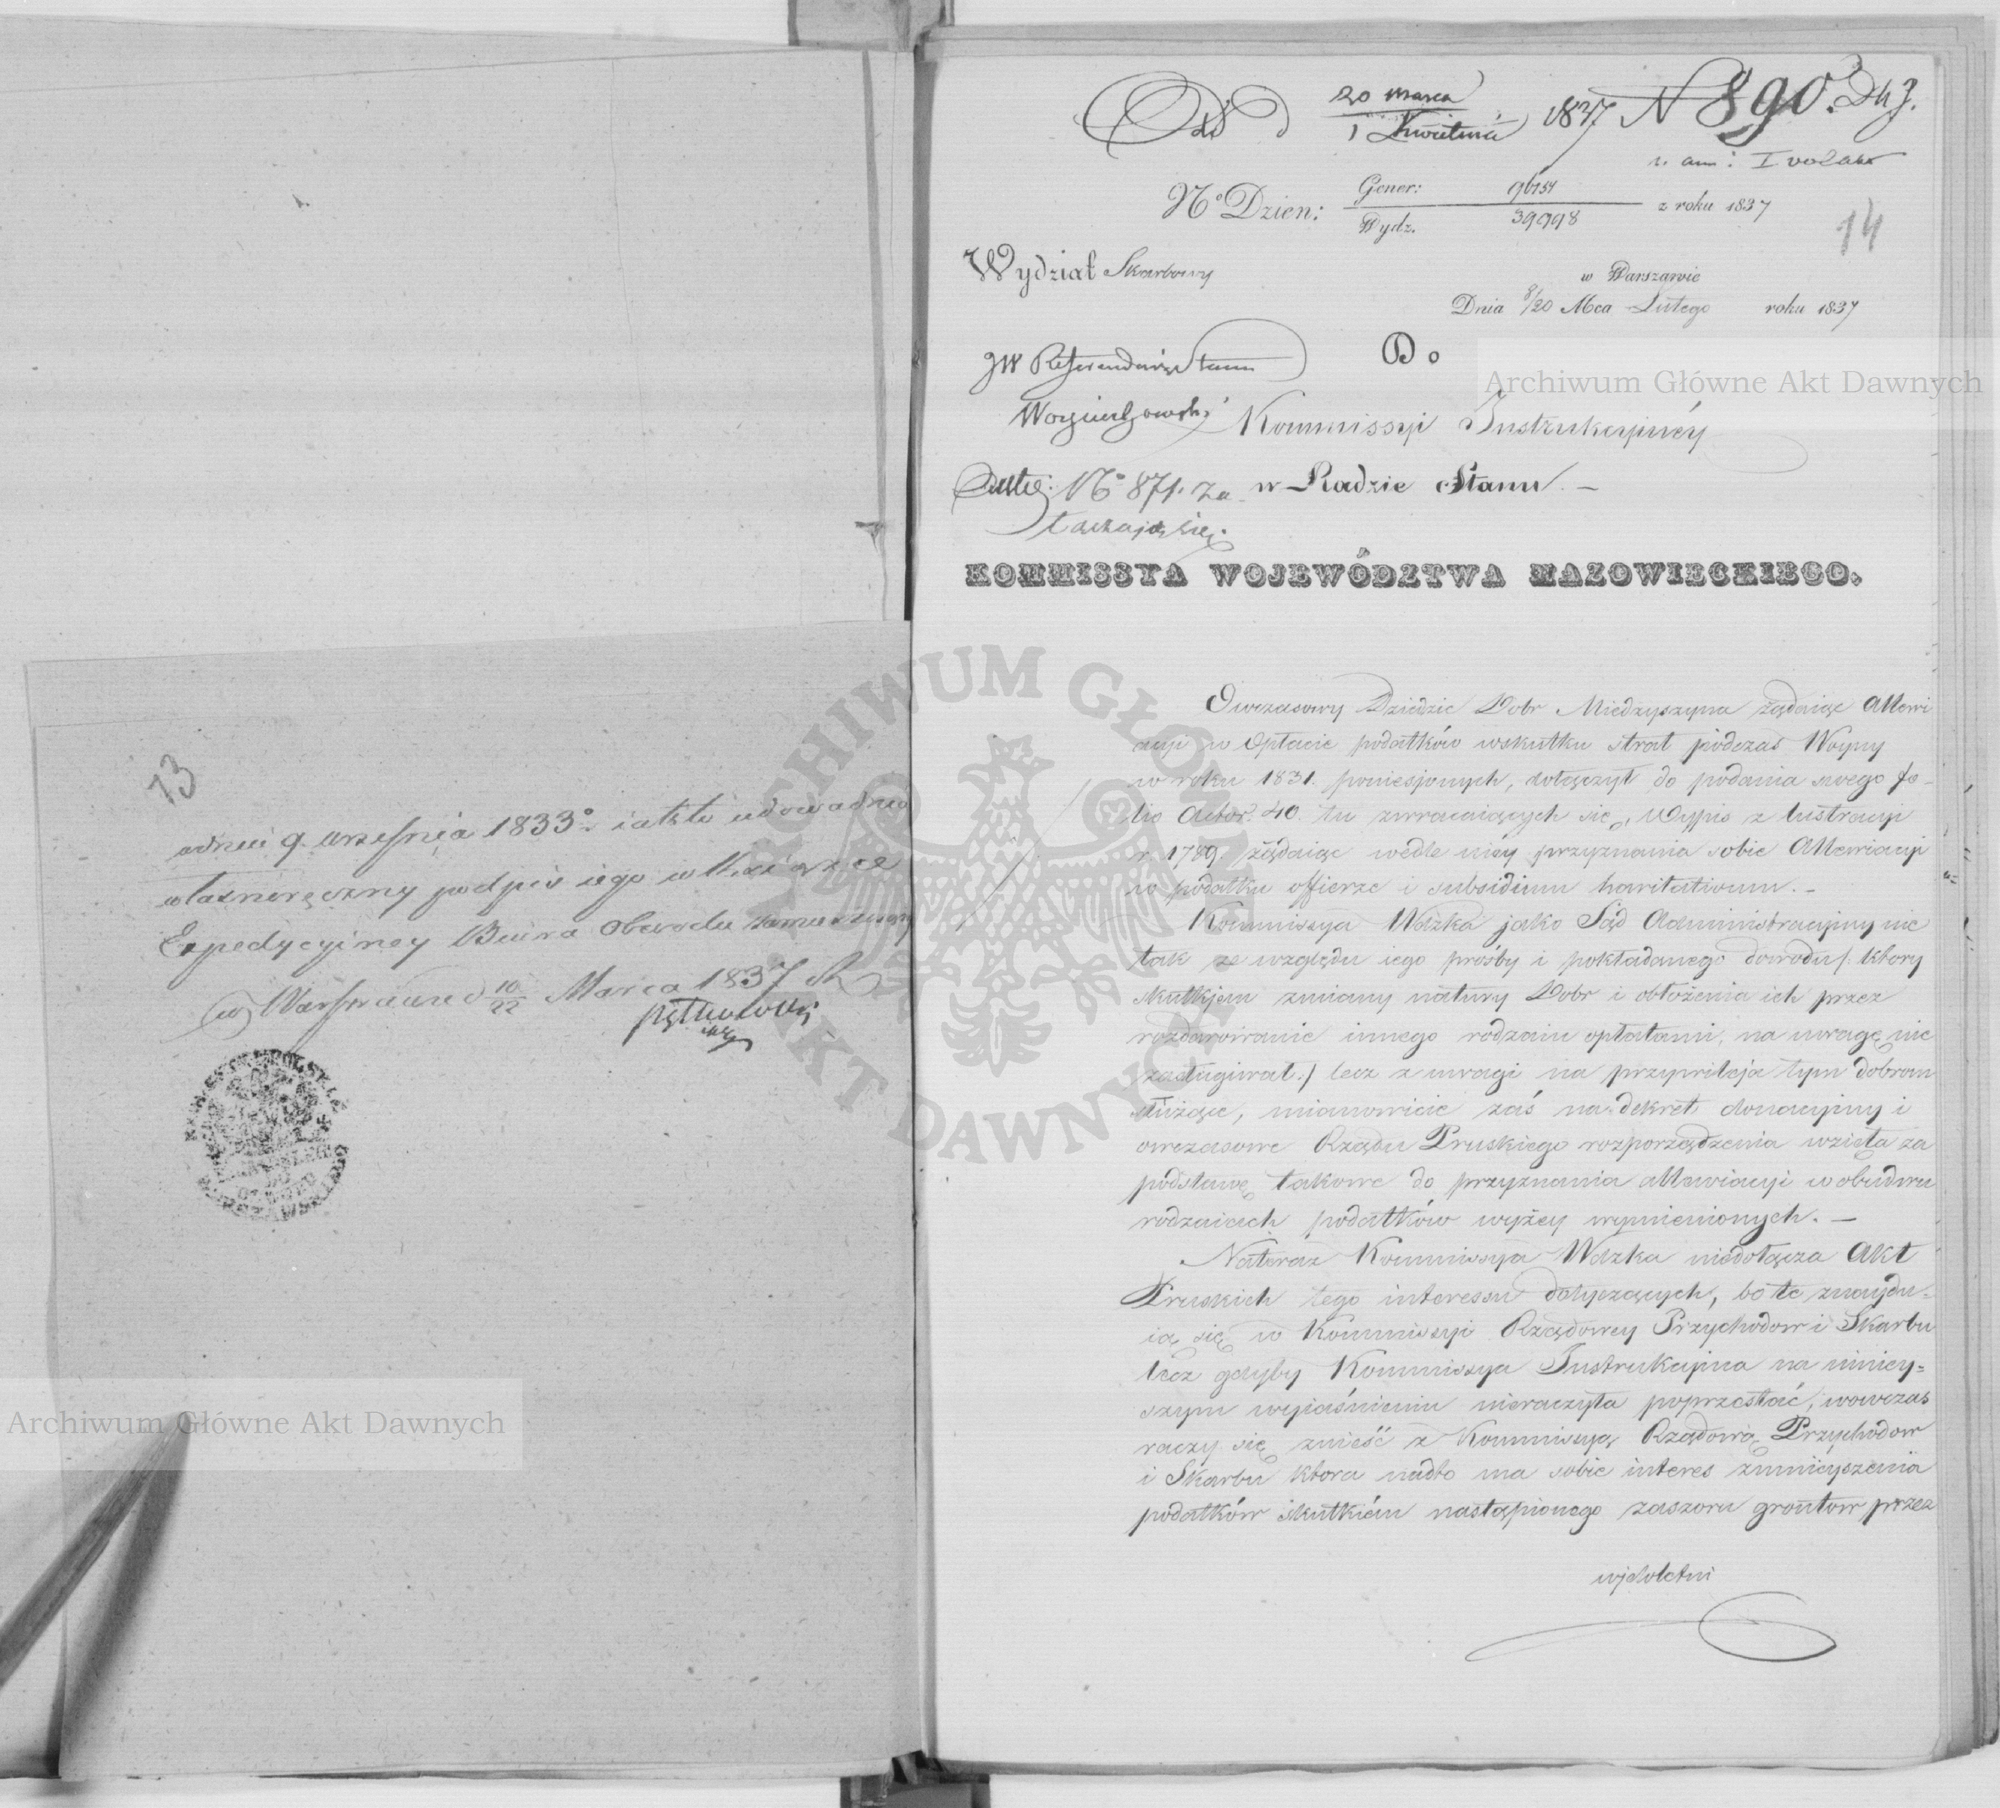 13
dnia 9. Września 1833.º iakto udowadnia
własnoręczny podpis iego w Xsiążce
Expedycyiney Biura Obwodu tomeczneg
w Warszawie d 10/22 Marca 1837 R
20 Marca
1 Kwietnia 1837 N 890. Dkz.
14
Nº Dzien: Gener: 96754
Wydz. 39998 z roku 1837
Wydział Skarbowy
w Warszawie
Dnia 8/20 Mca Lutego roku 1837
JW Referendarz Stanu
Do
Woyciechowski
Kommissyi Instrukcyiney
Nº 871. Za
w Radzie Stanu. —
łączają się.
KOMMISSYA WOJEWÓDZTWA MAZOWIECKIEGO.
Owczasowy Dziedzic Dobr Miedzyszyna żądaiąc Allewi
acyi w Opłacie podatków wskutku strat podczas Woyny
w roku 1831. poniesionych, dołączył do podania swego fo-
lio Actor. 40. tu zwracaiących się, Wypis z lustracyi
r. 1789. żądaiąc wedle niéy przyznania sobie Allewiacyi
w podatku offierze i subsidium haritativum. –
Kommissya Wdzka jako Sąd Administracyiny nie
tak ze względu iego prośby i pokładanego dowodu /: ktory
skutkiem zmiany natury Dobr i obłożenia ich przez
rozdarowanie innego rodzaiu opłatami, na uwagę nie
zasługiwał :/ lecz z uwagi na przywileja tym dobrom
służące, mianowicie zaś na dekret donacyiny i
owczasowe Rządu Pruskiego rozporządzenia wzięła za
podstawę takowe do przyznania allewiacyi w obudwu
rodzaiach podatków wyżey wymienionych. —
Nateraz Kommissya Wdzka niedołącza Akt
Pruskich tego interessu dotyczących, bo te znaydu-
ią się w Kommissyi Rządowey Przychodow i Skarbu
lecz gdyby Kommissya Instrukcyina na niniey-
szym wyiaśnieniu nieraczyła poprzestać, wowczas
raczy się znieść z Kommissyą Rządową Przychodow
i Skarbu ktora nadto ma sobie interes zmnieyszenia
podatków skutkiem nastąpionego zaszoru grontow przez
Archiwum Główne Akt Dawnych
Archiwum Główne Akt Dawnych
ARCHIWUM GŁÓWNE AKT DAWNYCH